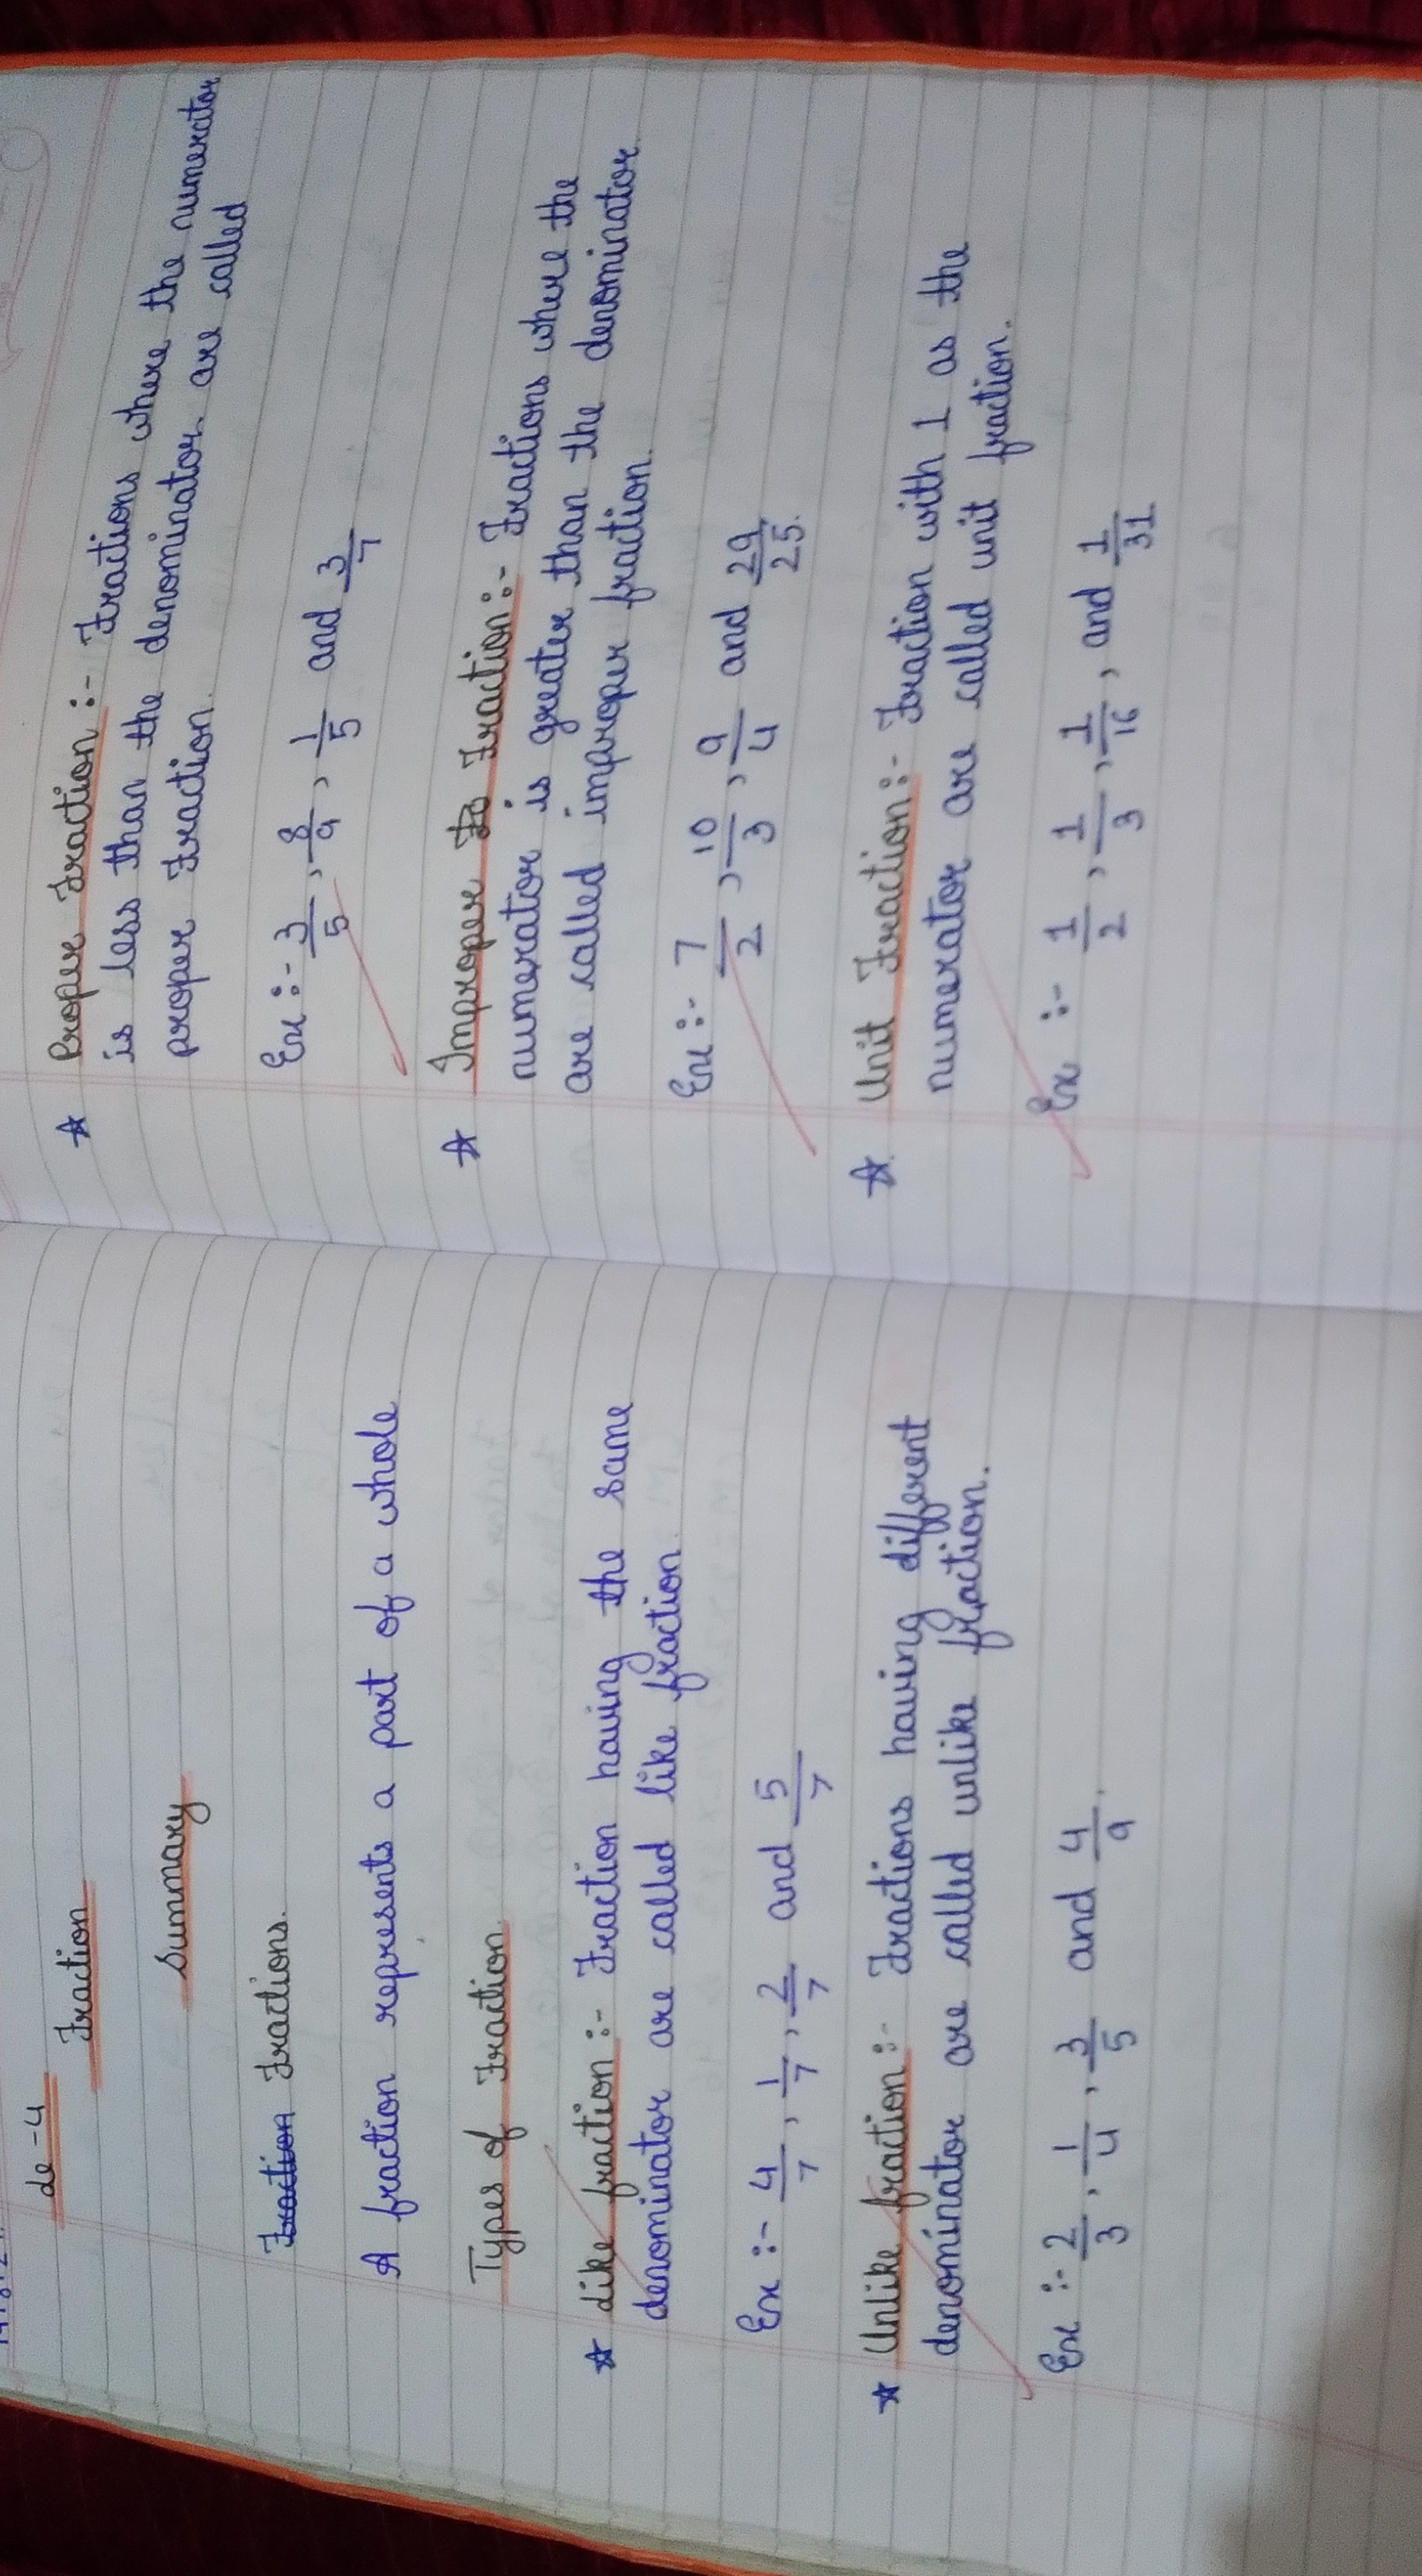 de - 4
Fraction
Summary
Fraction Fractions.
A fraction represents a part of a whole
Types of Fraction.
☆ Like fraction :- Fraction having the same
denominator are called like fraction.
Ex :- 4/7, 1/7, 2/7 and 5/7
☆ Unlike fraction :- Fractions having different
denominator are called unlike fraction.
Ex :- 2/3, 1/4, 3/5 and 4/9.
☆ Proper Fraction :- Fractions where the numerator
is less than the denominator are called
proper Fraction.
Ex :- 3/5, 8/9, 1/5 and 3/7
☆ Improper Fr Fraction :- Fractions where the
numerator is greater than the denominator.
are called improper fraction.
Ex :- 7/2, 10/3, 9/4 and 29/25.
☆ Unit Fraction :- Fraction with 1 as the
numerator are called unit fraction.
Ex :- 1/2, 1/3, 1/16, and 1/31